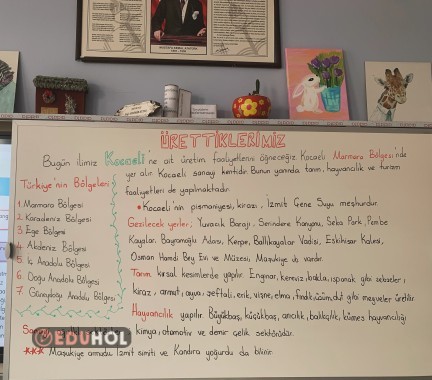 ÜRETTİKLERİMİZ
Bugün ilimiz Kocaeli'ne ait üretim faaliyetlerini öğreneceğiz. Kocaeli Marmara Bölgesi'nde
yer alır. Kocaeli sanayi kentidir. Bunun yanında tarım, hayvancılık ve turizm
faaliyetleri de yapılmaktadır.
Türkiye'nin Bölgeleri
1. Marmara Bölgesi
2. Karadeniz Bölgesi
3. Ege Bölgesi
4. Akdeniz Bölgesi
5. İç Anadolu Bölgesi
6. Doğu Anadolu Bölgesi
7. Güneydoğu Anadolu Bölgesi
* Kocaeli'nin pişmaniyesi, kirazı, İzmit Gene Suyu meşhurdur.
Gezilecek yerler; Yuvacık Barajı, Serindere Kanyonu, Seka Park, Pembe
Kayalar, Bayramoğlu Adası, Kerpe, Ballıkayalar Vadisi, Eskihisar Kalesi,
Osman Hamdi Bey Evi ve Müzesi, Maşukiye vb vardır.
Tarım kırsal kesimlerde yapılır. Enginar, kereviz, bakla, ıspanak gibi sebzeler;
kiraz, armut, ayva, şeftali, erik, vişne, elma, fındık, üzüm, dut gibi meyveler üretilir.
Hayvancılık yapılır. Büyükbaş, küçükbaş, arıcılık, balıkçılık, kümes hayvancılığı
kimya, otomotiv ve demir çelik sektörüdür.
*** Maşukiye armudu İzmit simiti ve Kandıra yoğurdu da bilinir.
EDUHOL